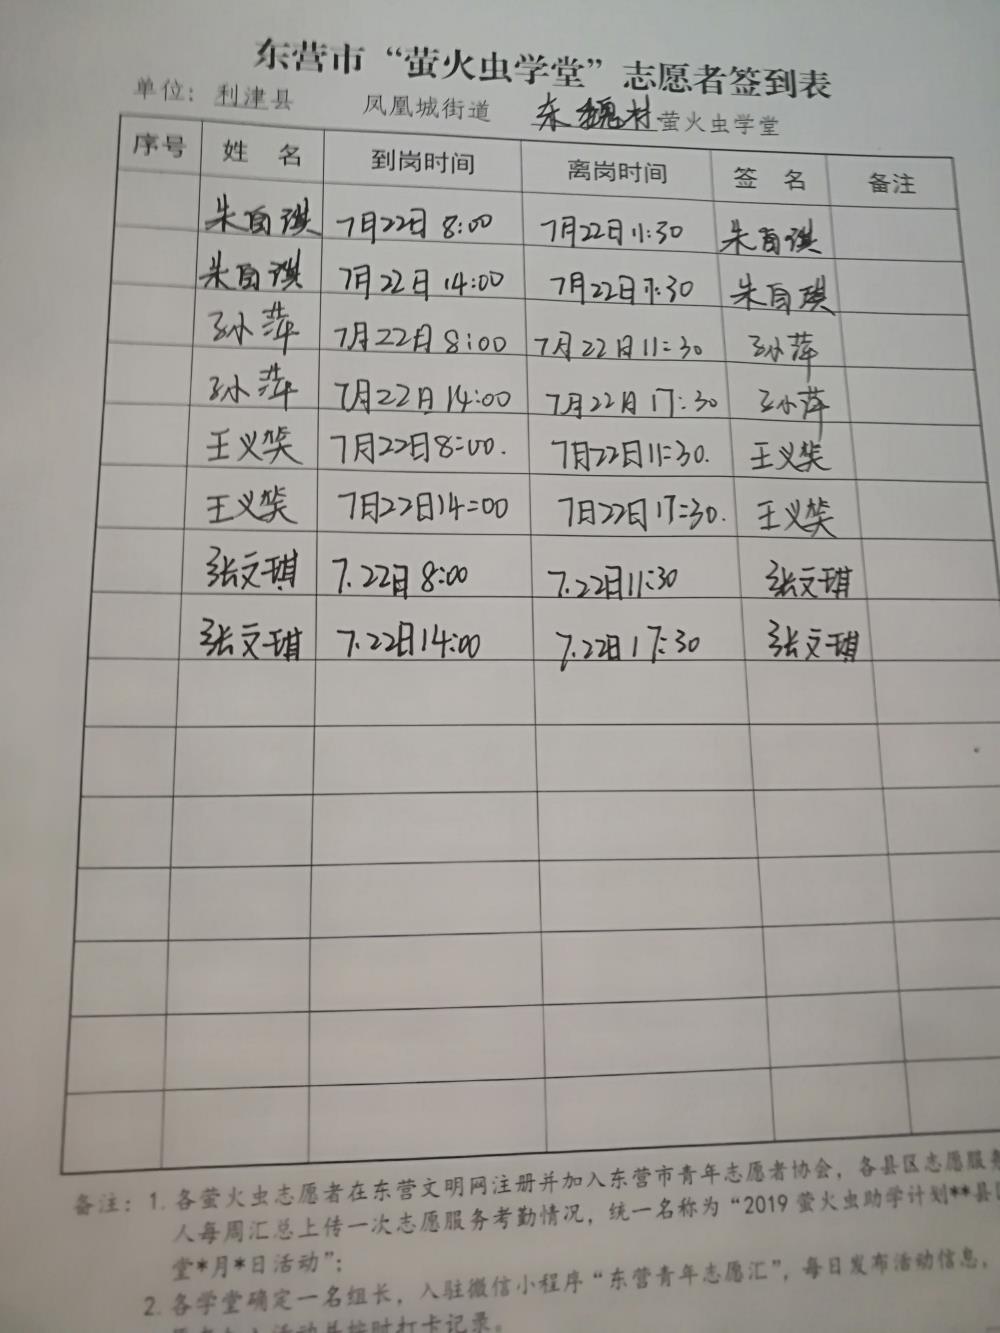 东营市“萤火虫学堂”志愿者签到表
单位：利津县 凤凰城街道 东魏村萤火虫学堂
序号 姓 名 到岗时间 离岗时间 签 名 备注
朱自琪 7月22日 8:00 7月22日 11:30 朱自琪
朱自琪 7月22日 14:00 7月22日 17:30 朱自琪
孙小萍 7月22日 8:00 7月22日 11:30 孙小萍
孙小萍 7月22日 14:00 7月22日 17:30 孙小萍
王义 7月22日8:00. 7月22日11:30. 王义
王义 7月22日14:00 7月22日17:30. 王义
张文琪 7.22日 8:00 7.22日11:30 张文琪
张文琪 7.22日14:00 7.22日 17:30 张文琪
备注：1. 各萤火虫志愿者在东营文明网注册并加入东营市青年志愿者协会，各县区志愿服务
人每周汇总上传一次志愿服务考勤情况，统一名称为“2019 萤火虫助学计划**县
堂*月*日活动”；
2. 各学堂确定一名组长，入驻微信小程序“东营青年志愿汇”，每日发布活动信息，
按时打卡记录。